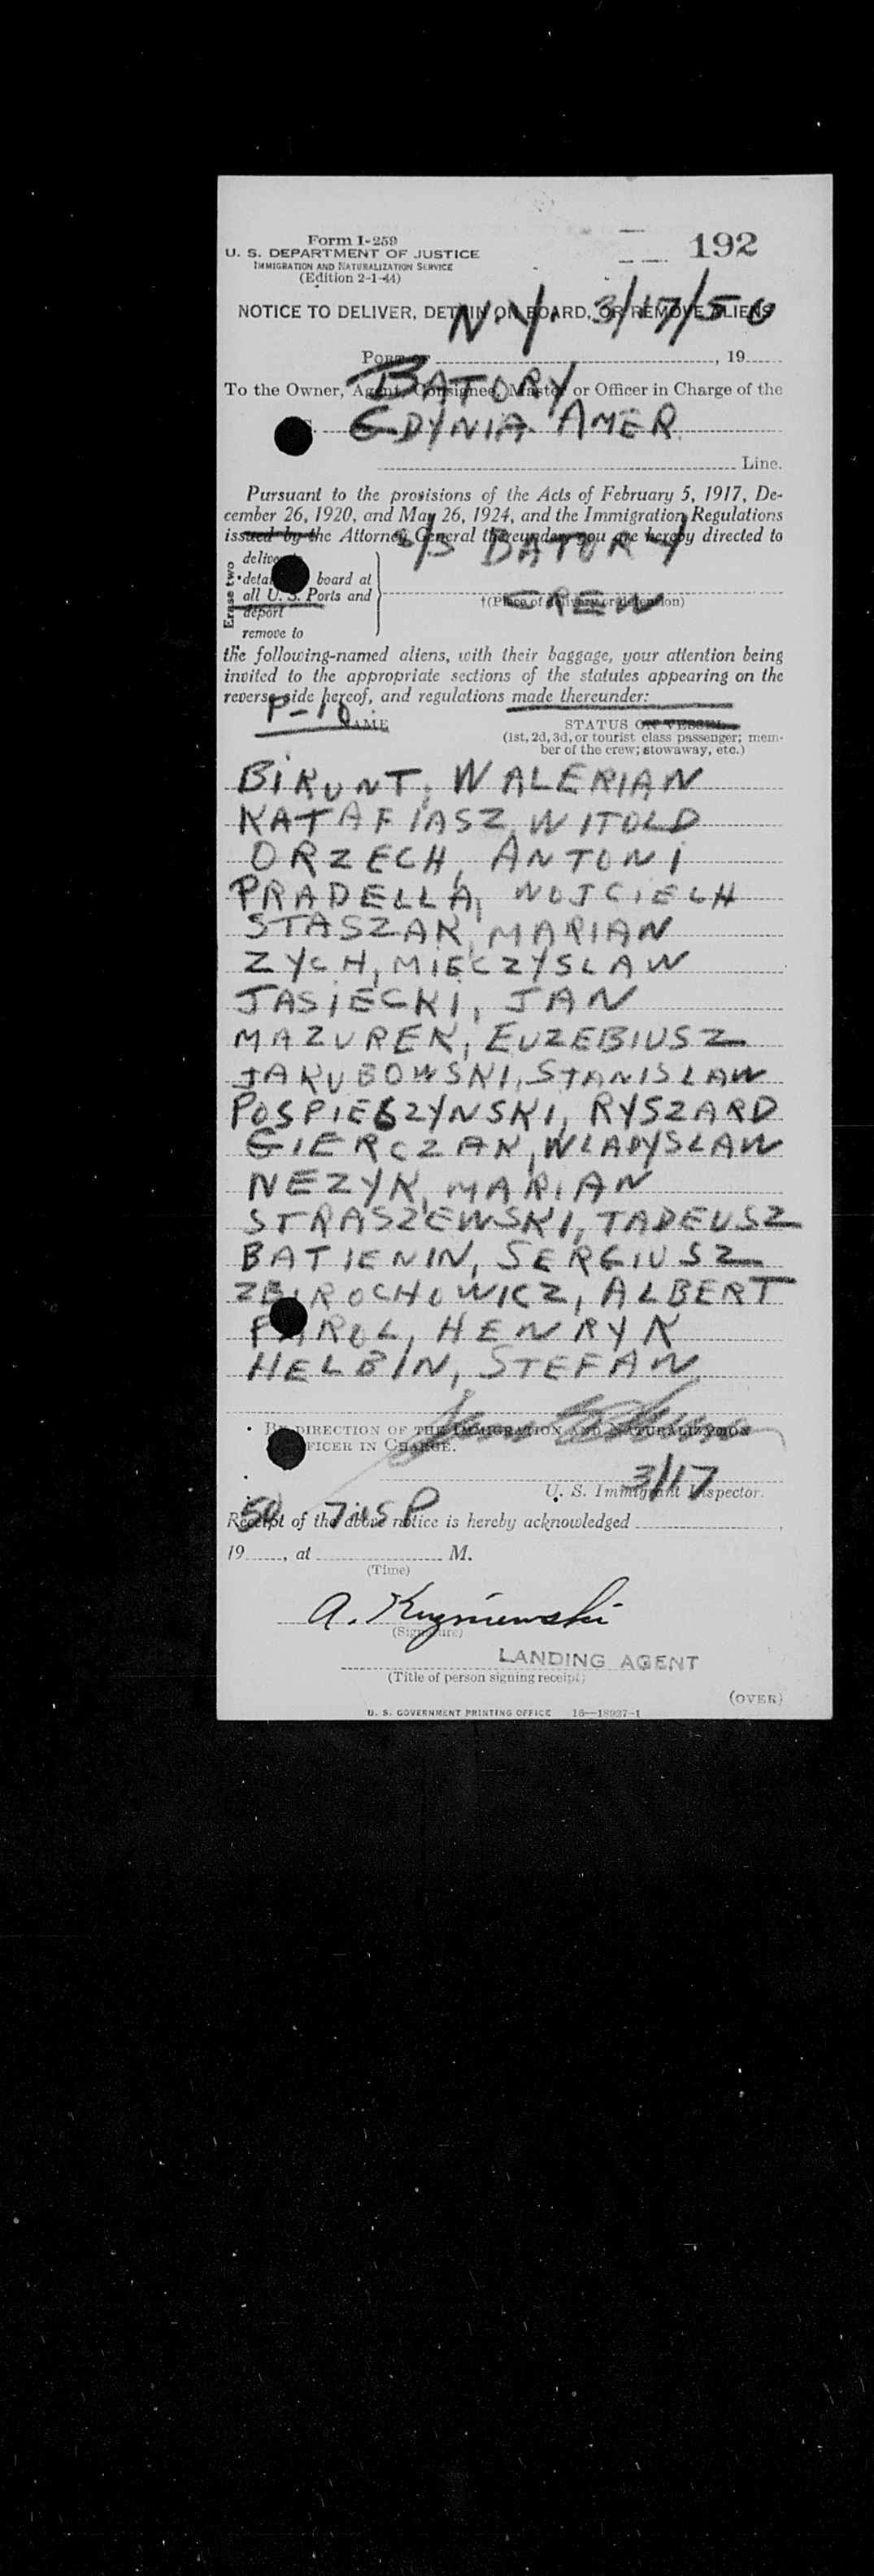 Form I-259
U. S. DEPARTMENT OF JUSTICE
IMMIGRATION AND NATURALIZATION SERVICE
(Edition 2-1-44)
192
NOTICE TO DELIVER, DETAIN ON BOARD, OR REMOVE ALIENS
N.Y. 3/17/50
Port of , 19
To the Owner, Agent, Consignee, Master or Officer in Charge of the
BATORY
GDYNIA AMER.
Line.
Pursuant to the provisions of the Acts of February 5, 1917, De-
cember 26, 1920, and May 26, 1924, and the Immigration Regulations
issued by the Attorney General thereunder, you are hereby directed to
S/S BATORY
Erase two
deliver
detain board at
all U. S. Ports and
deport
remove to
†(Place of delivery or detention)
CREW
the following-named aliens, with their baggage, your attention being
invited to the appropriate sections of the statutes appearing on the
reverse side hereof, and regulations made thereunder:
P-10
NAME
STATUS ON VESSEL
(1st, 2d, 3d, or tourist class passenger; mem-
ber of the crew; stowaway, etc.)
BIRUNT, WALERIAN
KATAFIASZ, WITOLD
ORZECH, ANTONI
PRADELLA, WOJCIECH
STASZAK, MARIAN
ZYCH, MIECZYSLAW
JASIECKI, JAN
MAZUREK, EUZEBIUSZ
JAKUBOWSKI, STANISLAW
POSPIESZYNSKI, RYSZARD
GIERCZAK, WLADYSLAW
NEZYK, MARIAN
STRASZEWSKI, TADEUSZ
BATIENIN, SERGIUSZ
ZBIROCHOWICZ, ALBERT
PAROL, HENRYK
HELBIN, STEFAN
BY DIRECTION OF THE IMMIGRATION AND NATURALIZATION
OFFICER IN CHARGE.
U. S. Immigrant Inspector.
3/17
Receipt of the above notice is hereby acknowledged ,
50 7:15 P
19 , at M.
(Time)
A. Kuzniewski
(Signature)
LANDING AGENT
(Title of person signing receipt)
(OVER)
U. S. GOVERNMENT PRINTING OFFICE 16—18937-1